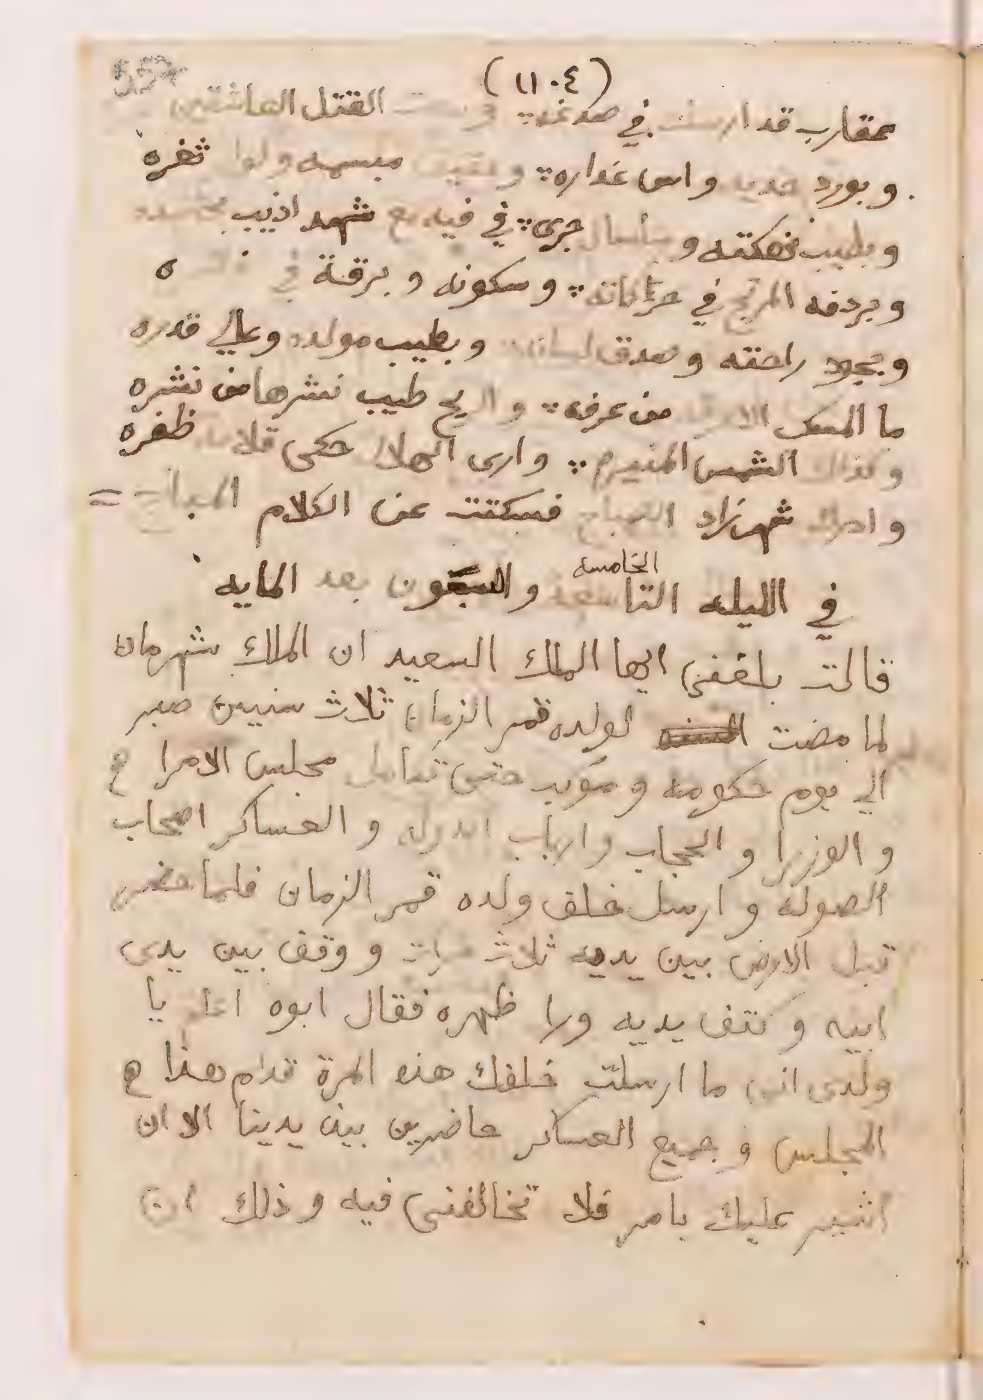 (١١٠٤)
557
عقارب قد ارسلت في صدغه القتل العاشقين
وبورد خديه واس عذاره وعقيق مبسمه ولولو ثغره
وبطيب نكهته وسلسال جرى في فيه مع شهد اذيب
وبردفه المرتج في حركاته وسكونه وبرقة في
وبجود راحته وصدق لسانه وبطيب مولده وعالي قدره
ما المسك من عرفه والريح طيب نشرها من نشره
وكذلك الشمس المنيره وارى الهلال حكى قلامة ظفره
وادرك شهرزاد الصباح فسكتت عن الكلام المباح
الخامسه
في الليله التاسعة والسبعون بعد المايه
قالت بلغني ايها الملك السعيد ان الملك شهرمان
لما مضت السنه لولده قمر الزمان ثلاث سنيين صبر
الي يوم حكومه وموكب حتى تكامل مجلس الامرا
والوزرا والحجاب وارباب الدوله والعساكر اصحاب
الصوله وارسل خلف ولده قمر الزمان فلما حضر
قبل الارض بين يديه ثلاث مرات ووقف بين يدى
ابيه وكتف يديه ورا ظهره فقال ابوه اعلم يا
ولدى اني ما ارسلت خلفك هذه المرة قدام هذا
المجلس وجميع العساكر حاضرين بين يدينا الا ان
اشير عليك بامر فلا تخالفني فيه وذلك ان